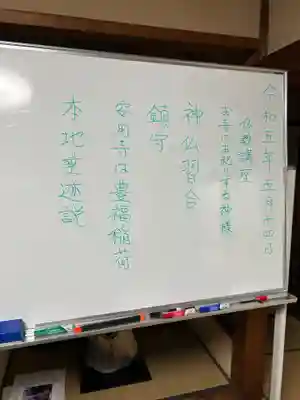 令和五年五月十四日
仏教講座
お寺にお祀りする神様
神仏習合
鎮守
安国寺は豊福稲荷
本地垂迹説